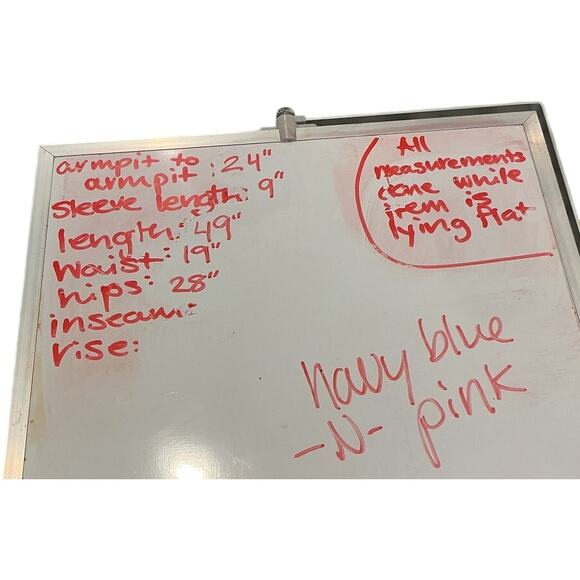 armpit to
armpit: 24"
sleeve length: 9"
length: 49"
waist: 19"
hips: 28"
inseam:
rise:
All
measurements
done while
irem is
lying flat
navy blue
-N- pink